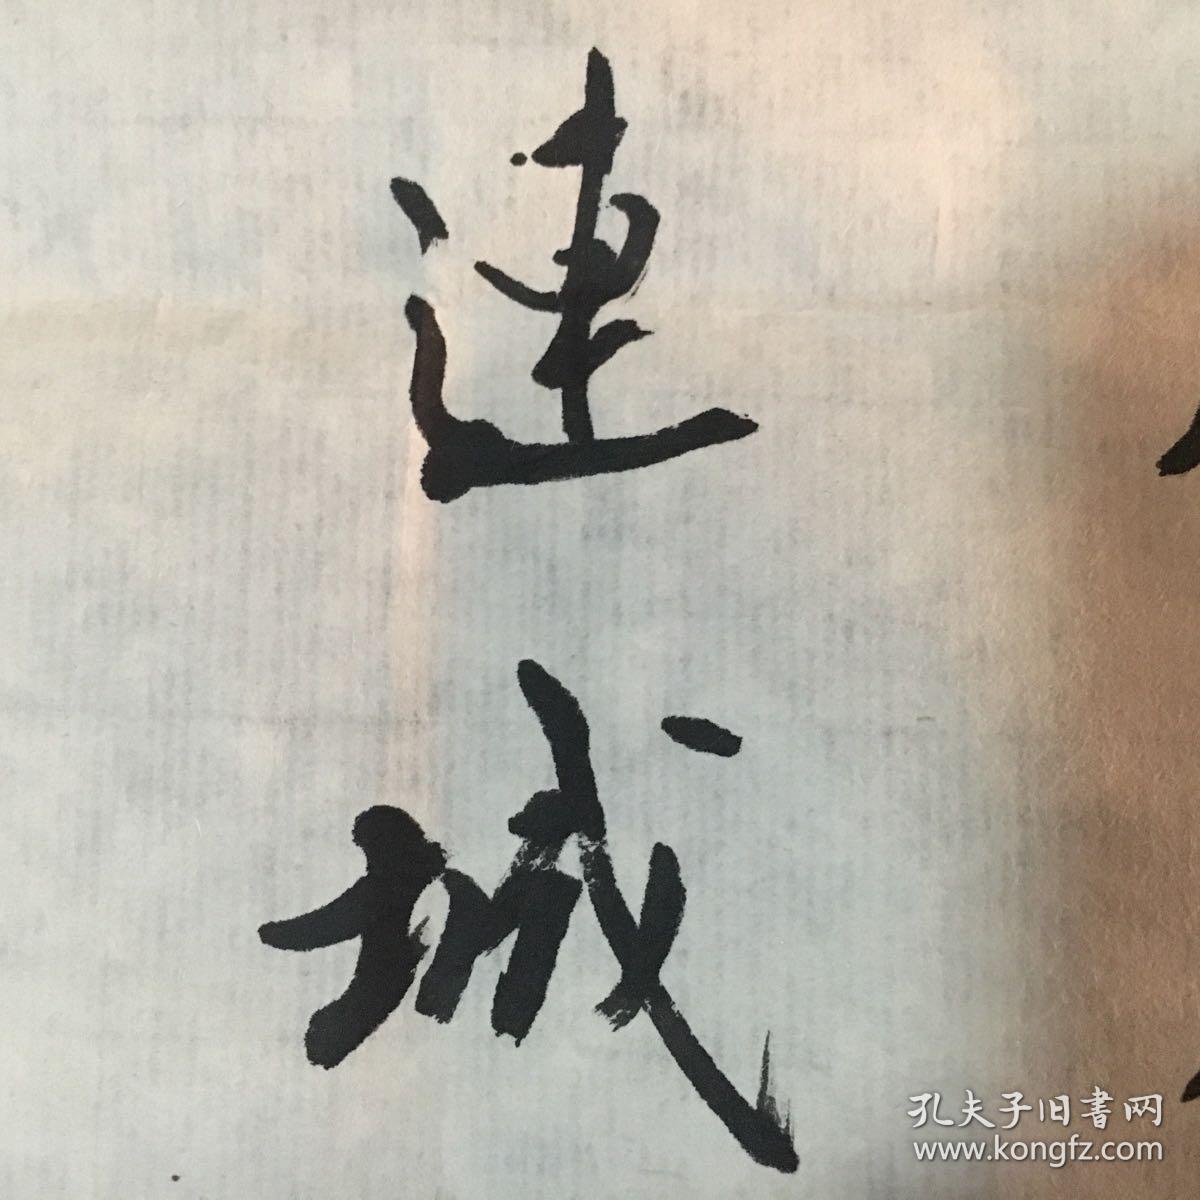 連城
孔夫子旧書网
www.kongfz.com